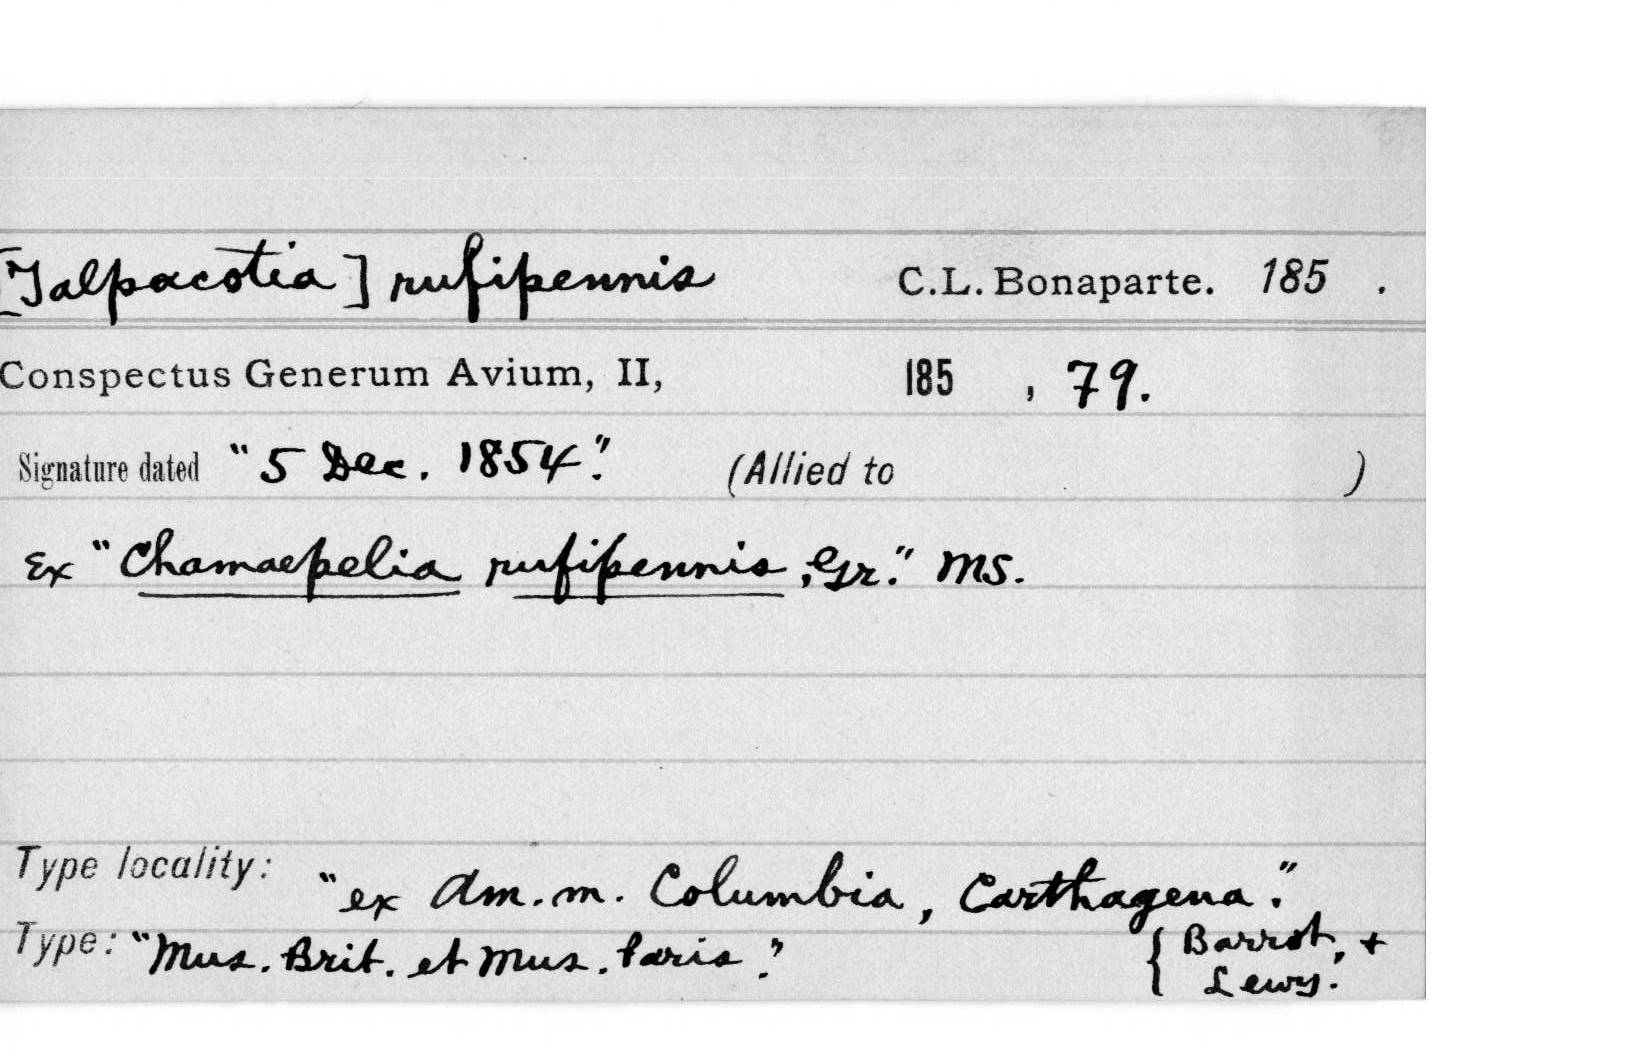 [Talpacotia] rufipennis C.L. Bonaparte. 185 .
Conspectus Generum Avium, II, 185 , 79.
Signature dated "5 Dec. 1854." (Allied to )
Ex "Chamaepelia rufipennis, Gr." MS.
Type locality: "ex Am. m. Columbia, Carthagena."
Type: "Mus. Brit. et Mus. Paris." { Barrot, +
Lewy.